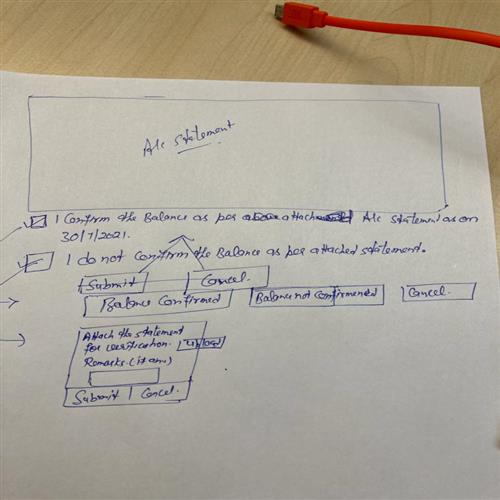 A/c statement
I Confirm the Balance as per above attach A/c statement as on
30/7/2021.
I do not confirm the Balance as per attached statement.
Submit Cancel.
Balance Confirmed Balance not confirmed Cancel.
Attach the statement
for verification. Upload
Remarks. (if any)
Submit Cancel.